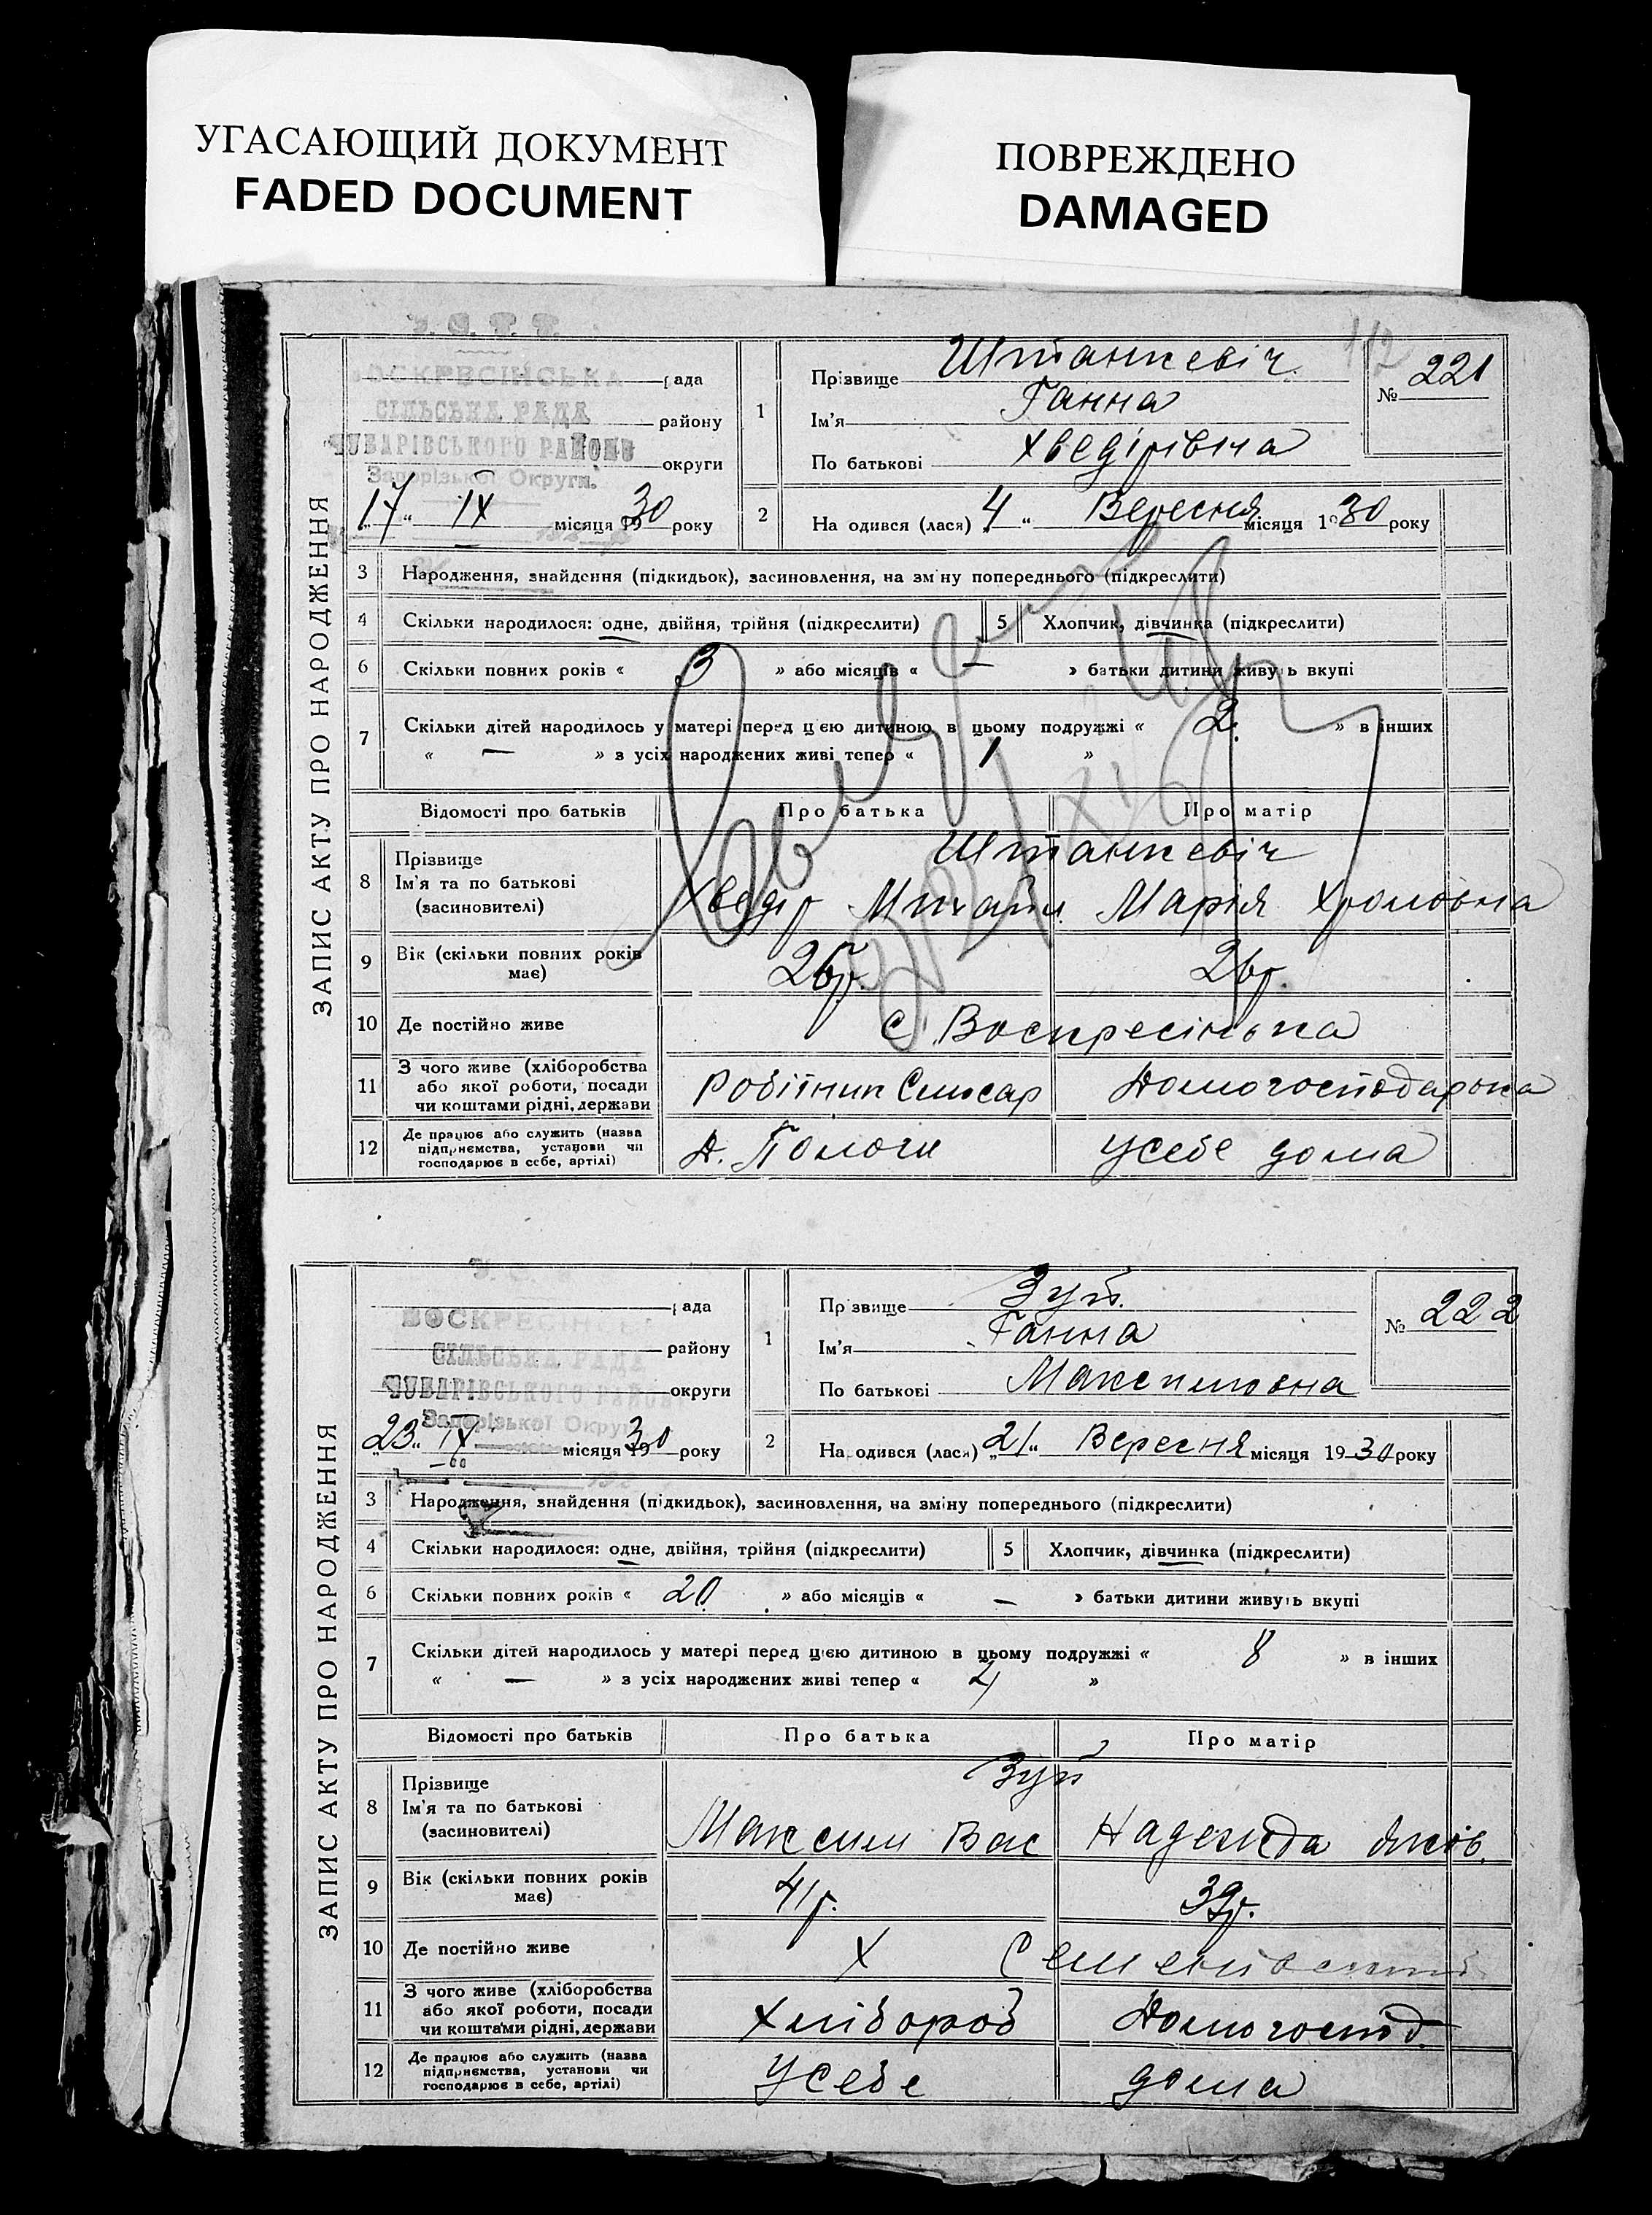 УГАСАЮЩИЙ ДОКУМЕНТ
FADED DOCUMENT
ПОВРЕЖДЕНО
DAMAGED
ЗАПИС АКТУ ПРО НАРОДЖЕННЯ
ВОСКРЕСІНСЬКА рада
СІЛЬСЬКА РАДА
району
ЧУБАРІВСЬКОГО РАЙОНУ
округи
Запорізької Округи.
„17“ IX місяця 1930 року
1 Прізвище Штанкевіч
Ім'я Ганна
По батькові Хведірівна
№ 221
112
2 На одився (лася) 4 “ Вересня місяця 1930 року
3 Народження, знайдення (підкидьок), засиновлення, на зміну попереднього (підкреслити)
4 Скільки народилося: одне, двійня, трійня (підкреслити) 5 Хлопчик, дівчинка (підкреслити)
6 Скільки повних років « 3 » або місяців « — » батьки дитини живуть вкупі
7 Скільки дітей народилось у матері перед цією дитиною в цьому подружжі « 2 » в інших
« — » з усіх народжених живі тепер « 1 »
Відомості про батьків Про батька Про матір
8 Прізвище Штанкевіч
Ім'я та по батькові Хведір Михайл. Марія
(засиновителі)
9 Вік (скільки повних років має) 26р. 26р.
10 Де постійно живе с. Воскресінька
11 З чого живе (хліборобства
або якої роботи, посади Робітник Слюсар Домогосподарка
чи коштами рідні, держави
12 Де працює або служить (назва
підприємства, установи чи Д. Пологи усебе дома
господарює в себе, артілі)
ЗАПИС АКТУ ПРО НАРОДЖЕННЯ
рада
ВОСКРЕСІНСЬКА
району
СІЛЬСЬКА РАДА
ЧУБАРІВСЬКОГО РАЙОНУ округи
Запорізької Округи
„23“ IX місяця 1930 року
1 Прізвище Зуб.
Ім'я Ганна
По батькові Максимовна
№ 222
2 На одився (лася) „21“ Вересня місяця 1930 року
3 Народження, знайдення (підкидьок), засиновлення, на зміну попереднього (підкреслити)
4 Скільки народилося: одне, двійня, трійня (підкреслити) 5 Хлопчик, дівчинка (підкреслити)
6 Скільки повних років « 20 » або місяців « — » батьки дитини живуть вкупі
7 Скільки дітей народилось у матері перед цією дитиною в цьому подружжі « 8 » в інших
« — » з усіх народжених живі тепер « »
Відомості про батьків Про батька Про матір
8 Прізвище Зуб
Ім'я та по батькові
(засиновителі) Максим Вас Надежда Яків.
9 Вік (скільки повних років має) 41р. 39р.
10 Де постійно живе Х
11 З чого живе (хліборобства
або якої роботи, посади Хлібороб Домогоспод.
чи коштами рідні, держави
12 Де працює або служить (назва
підприємства, установи чи Усебе дома
господарює в себе, артілі)